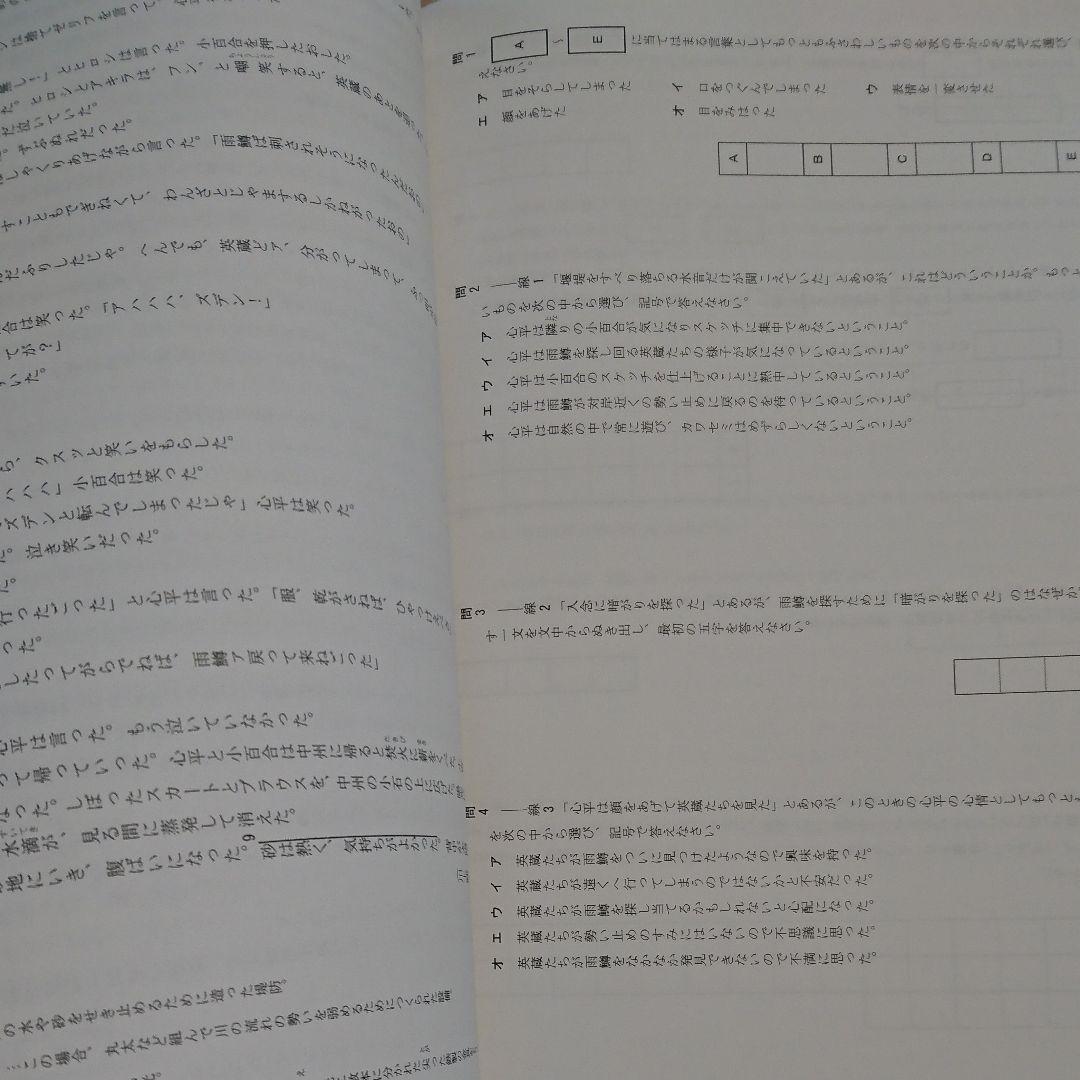 問1 A ～ E に当てはまる言葉としてもっともふさわしいものを次の中からそれぞれ選び、
えなさい。
ア 目をそらしてしまった イ 口をつぐんでしまった ウ 表情を一変させた
エ 顔をあげた オ 目をみはった
A B C D E
問2 ――線1「堰堤をすべり落ちる水音だけが聞こえていた」とあるが、これはどういうことか。もっ
いものを次の中から選び、記号で答えなさい。
ア 心平は隣りの小百合が気になりスケッチに集中できないということ。
イ 心平は雨鱒を探し回る英蔵たちの様子が気になっているということ。
ウ 心平は小百合のスケッチを仕上げることに熱中しているということ。
エ 心平は雨鱒が対岸近くの勢い止めに戻るのを待っているということ。
オ 心平は自然の中で常に遊び、カワセミはめずらしくないということ。
問3 ――線2「入念に暗がりを探った」とあるが、雨鱒を探すために「暗がりを探った」のはなぜか
す一文を文中からぬき出し、最初の五字を答えなさい。
問4 ――線3「心平は顔をあげて英蔵たちを見た」とあるが、このときの心平の心情としてもっとも
を次の中から選び、記号で答えなさい。
ア 英蔵たちが雨鱒をついに見つけたようなので興味を持った。
イ 英蔵たちが遠くへ行ってしまうのではないかと不安だった。
ウ 英蔵たちが雨鱒を探し当てるかもしれないと心配になった。
エ 英蔵たちが勢い止めのすみにはいないので不思議に思った。
オ 英蔵たちが雨鱒をなかなか発見できないので不満に思った。
は捨てゼリフを言って、心平
とヒロシは言った。小百合を押したおした。
た。ヒロシとアキラは、フン、と嘲笑すると、英蔵のあとを
だ泣いていた。
ずぶぬれだった。
しゃくりあげながら言った。「雨鱒は刺されそうになったんだ
すこともできねくて、わんざとじゃまするしかねがったおの
だふりしたじゃ。へんでも、英蔵ビア、分がってしまって
合は笑った。「アハハハ、ステン！」
てが？」
いた。
ら、クスッと笑いをもらした。
ハハハ」小百合は笑った。
ステンと転んでしまったじゃ」心平は笑った。
た。泣き笑いだった。
た。
行ったごった」と心平は言った。「服、乾がさねば、ひゃっけ
った。
したってがらでねば、雨鱒ア戻って来ねごった」
心平は言った。もう泣いていなかった。
って帰っていった。心平と小百合は中州に帰ると焚火に薪を
なった。しぼったスカートとブラウスを、中州の小石の上に広げ
水滴が、見る間に蒸発して消えた。
地にいき、腹ばいになった。9砂は熱く、気持ちがよかった
の水や砂をせき止めるために造った堤防。
この場合、丸太など組んで川の流れの勢いを弱めるためにつくられた